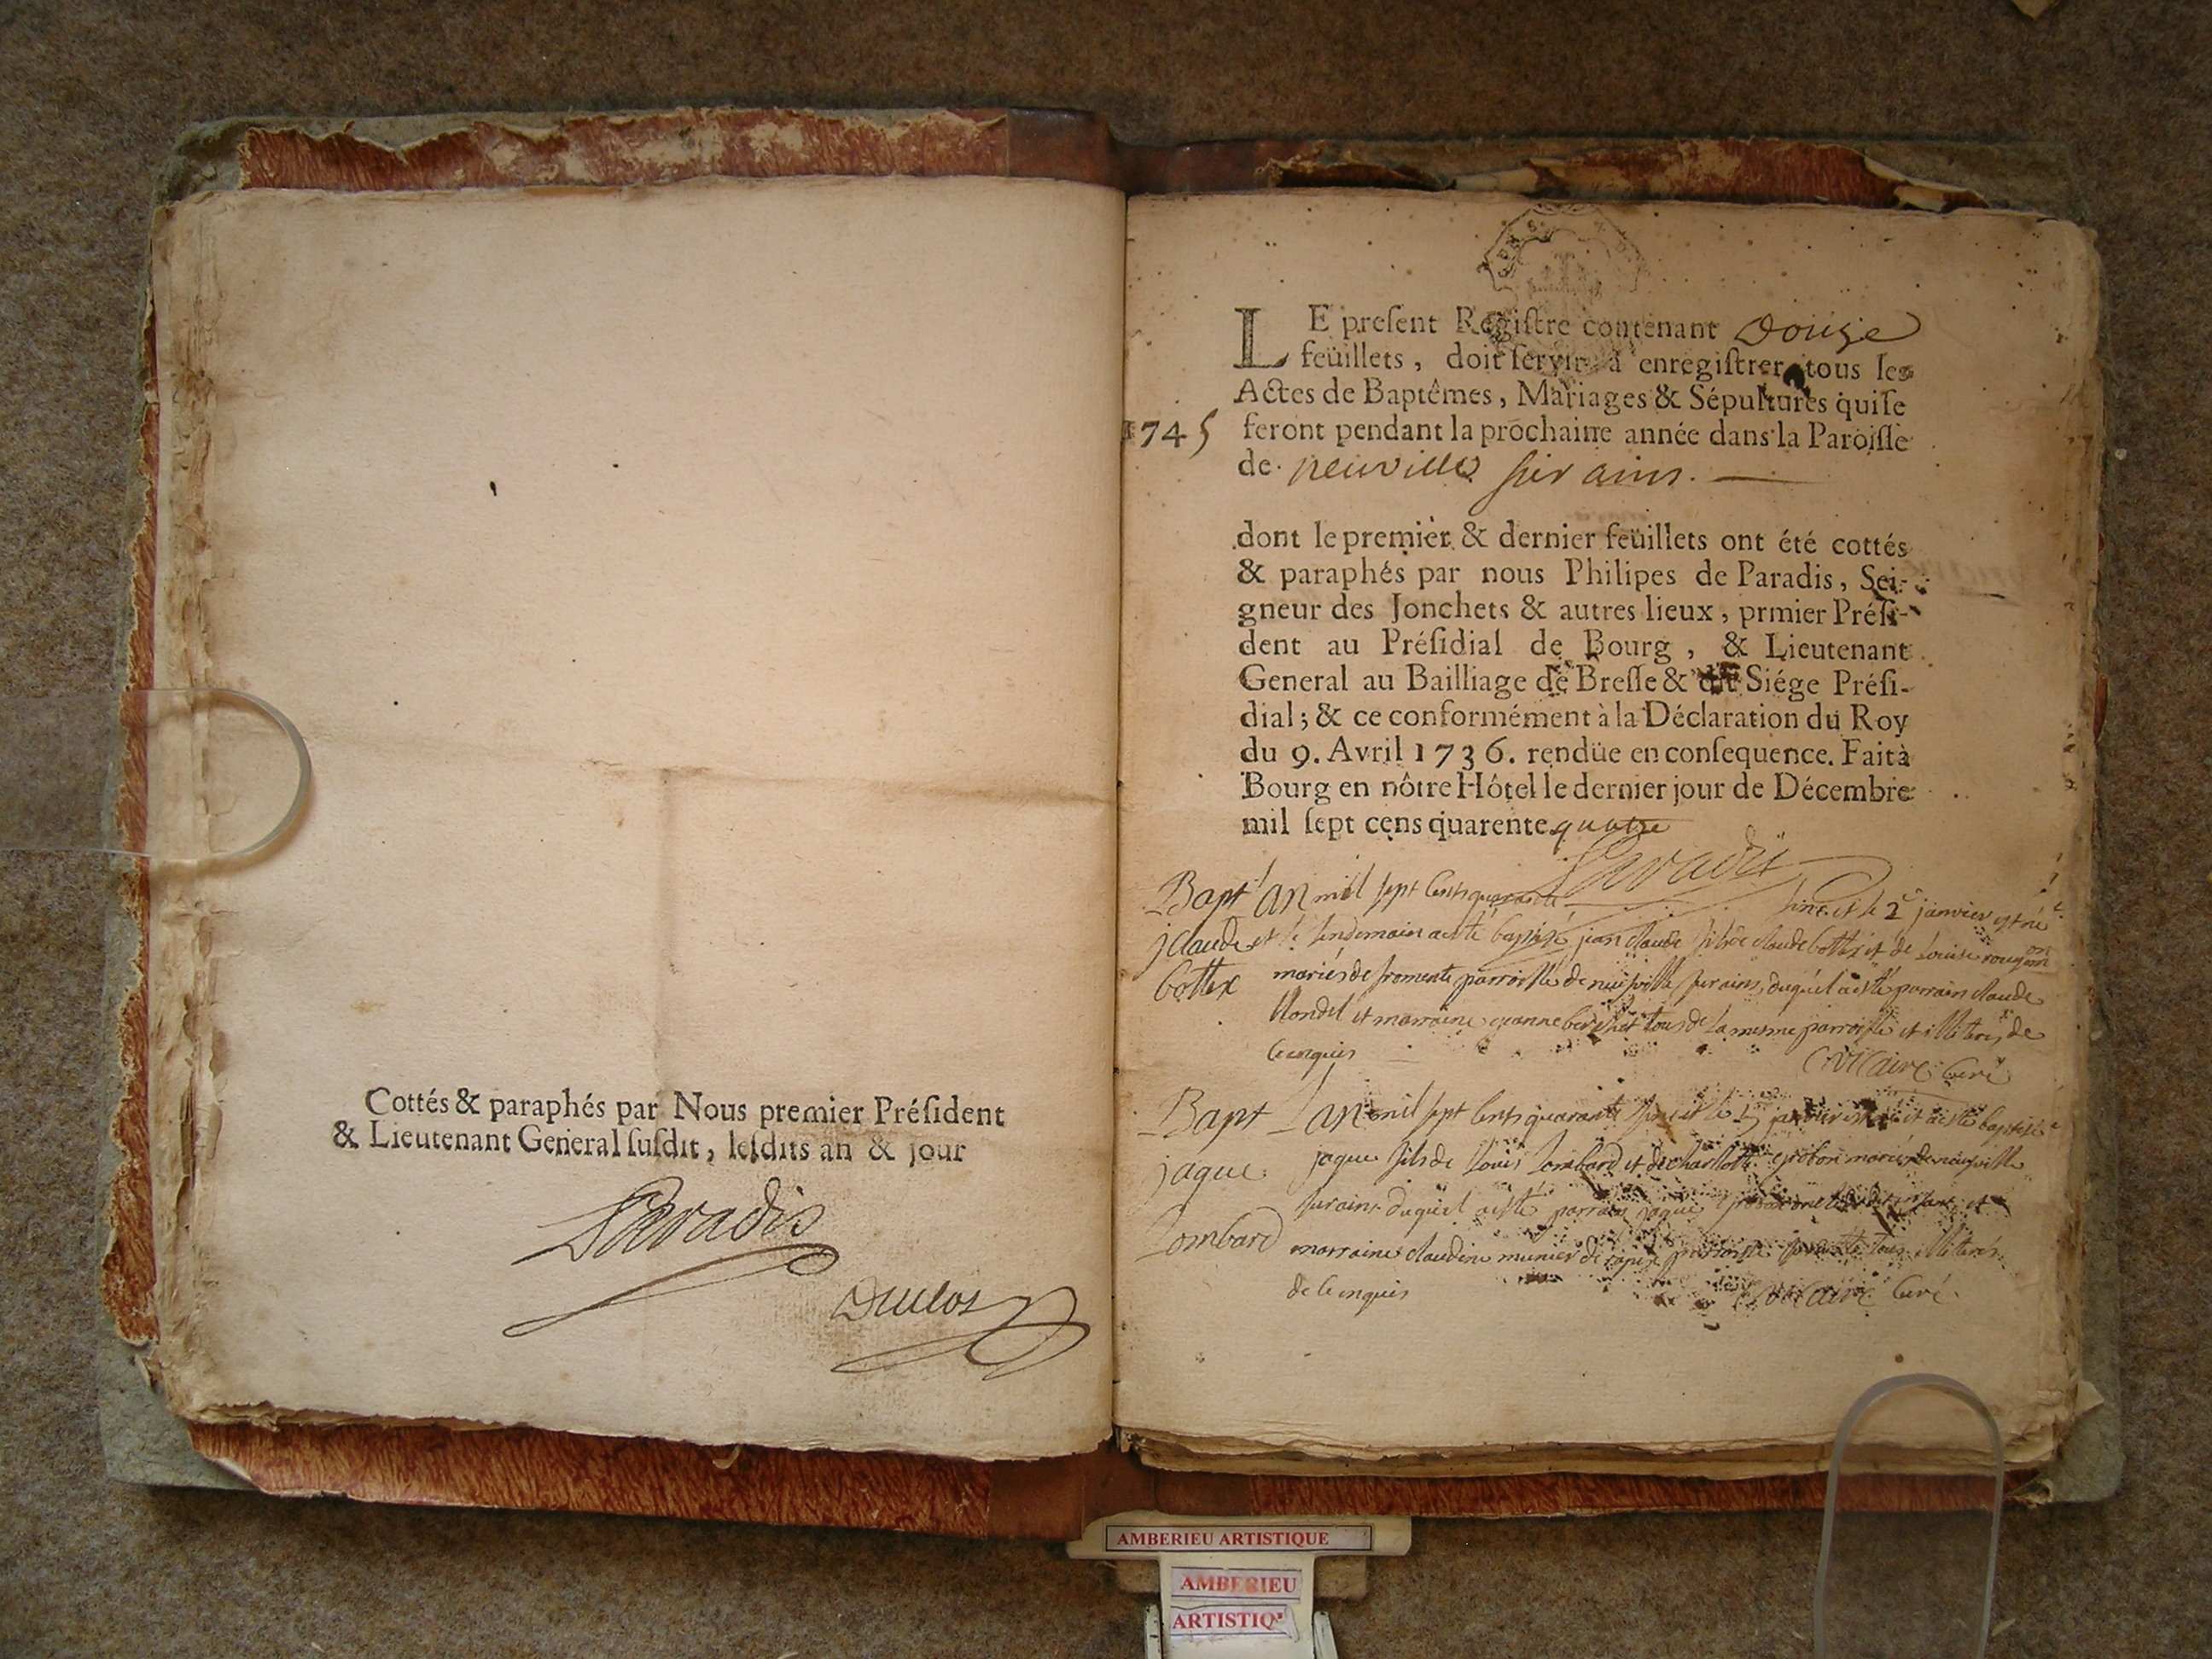 Cottés & paraphés par Nous premier Président
& Lieutenant General susdit, lesdits an & jour
Paradis
Duclos
LE present Registre contenant Douze
feüillets, doit servir à enregistrer tous les
Actes de Baptêmes, Mariages & Sépultures qui se
1745 feront pendant la prochaine année dans la Paroisse
de neuville sur ains.
dont le premier & dernier feüillets ont été cottés
& paraphés par nous Philipes de Paradis, Sei-
gneur des Jonchets & autres lieux, prmier Prési-
dent au Présidial de Bourg, & Lieutenant
General au Bailliage de Bresse & dit Siége Prési-
dial; & ce conformément à la Déclaration du Roy
du 9. Avril 1736. rendüe en consequence. Fait à
Bourg en nôtre Hôtel le dernier jour de Décembre
mil sept cens quarente quatre
Paradis
Bapt l'an mil sept cents quarante cinc et le 2e janvier est né
j claude et le lendemain a esté baptisé jean claude fils de claude bottex et de Louise
bottex mariés de fromente parroisse de neufville sur ains, duquel a esté parrain claude
blondel et marraine tous de la mesme parroisse et illiterés de
ce enquis
curé
Bapt L'an mil sept cents quarante cinc et le 5 janvier est né et a esté baptisé
jaque jaque fils de Louis Lombard et de charlotte mariés de neufville
Lombard sur ains duquel a esté parrain jaque et
marraine claudine munier de parroisse tous illiterés
de ce enquis
curé
AMBERIEU ARTISTIQUE
AMBERIEU
ARTISTIQ